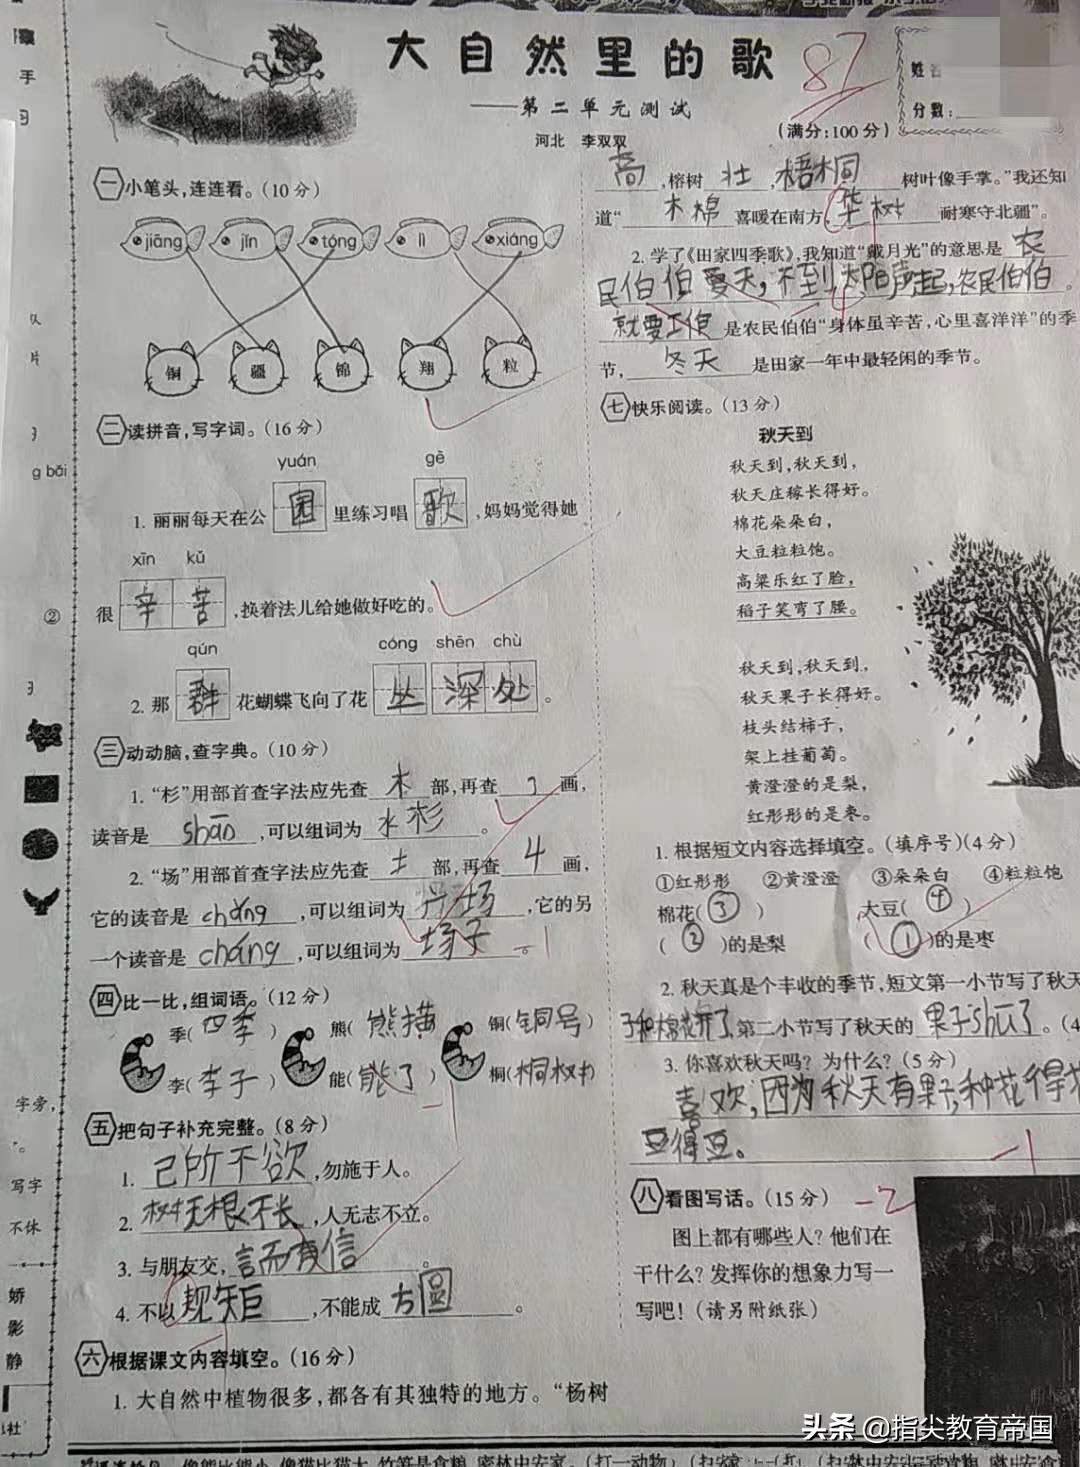 大自然里的歌
87
——第二单元测试
河北 李双双
(满分:100分)
分数:
一 小笔头,连连看。(10分)
jiāng jǐn tóng lì xiáng
铜 疆 锦 翔 粒
二 读拼音,写字词。(16分)
yuán gē
1. 丽丽每天在公 园 里练习唱 歌 ,妈妈觉得她
xīn kǔ
很 辛 苦 ,换着法儿给她做好吃的。
qún cóng shēn chù
2. 那 群 花蝴蝶飞向了花 丛 深 处 。
三 动动脑,查字典。(10分)
1. “杉”用部首查字法应先查 木 部,再查 3 画,
读音是 shān ,可以组词为 水杉 。
2. “场”用部首查字法应先查 土 部,再查 4 画,
它的读音是 chǎng ,可以组词为 ,它的另
一个读音是 cháng ,可以组词为 场子 。 -1
四 比一比,组词语。(12分)
季( 四季 ) 熊( 熊猫 ) 铜( 铜号 )
李( 李子 ) 能( 能了 ) 桐( 桐树 )
-1
五 把句子补充完整。(8分)
1. 己所不欲 ,勿施于人。
2. 树无根不长 ,人无志不立。
3. 与朋友交, 言而有信 。
4. 不以 规矩 ,不能成 方圆 。
六 根据课文内容填空。(16分)
1. 大自然中植物很多,都各有其独特的地方。“杨树
高 ,榕树 壮 , 梧桐 树叶像手掌。”我还知
道“ 木棉 喜暖在南方, 桦树 耐寒守北疆”。
2. 学了《田家四季歌》,我知道“戴月光”的意思是 农
民伯伯夏天,不到太阳 起,农民伯伯 。
-4
就要工作 是农民伯伯“身体虽辛苦,心里喜洋洋”的季
节, 冬天 是田家一年中最轻闲的季节。
七 快乐阅读。(13分)
秋天到
秋天到,秋天到,
秋天庄稼长得好。
棉花朵朵白,
大豆粒粒饱。
高粱乐红了脸,
稻子笑弯了腰。
秋天到,秋天到,
秋天果子长得好。
枝头结柿子,
架上挂葡萄。
黄澄澄的是梨,
红彤彤的是枣。
1. 根据短文内容选择填空。(填序号)(4分)
①红彤彤 ②黄澄澄 ③朵朵白 ④粒粒饱
棉花( ③ ) 大豆( ④ )
( ② )的是梨 ( ① )的是枣
2. 秋天真是个丰收的季节,短文第一小节写了秋天
子和棉花开了,第二小节写了秋天的 果子shu了 。(4
3. 你喜欢秋天吗? 为什么?(5分)
喜欢,因为秋天有果子,种花得花
豆得豆。
-1
八 看图写话。(15分) -2
图上都有哪些人? 他们在
干什么? 发挥你的想象力写一
写吧! (请另附纸张)
手
g bǎi
②
字旁,
写字
不休
娇
影
静
头条 @指尖教育帝国